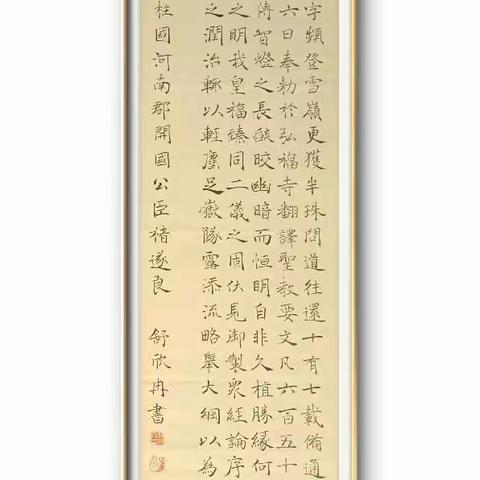 字頻登雪嶺更獲半珠問道往還十有七載俻通
六日奉勅於弘福寺翻譯聖教要文凡六百五十
傳智燈之長燄皎幽暗而恒明自非久植勝緣何
之明我皇福臻同二儀之固伏見御製眾經論序
之潤治輙以輕塵足嶽隊露添流略舉大綱以為
柱國河南郡開國公臣褚遂良 舒欣冉書